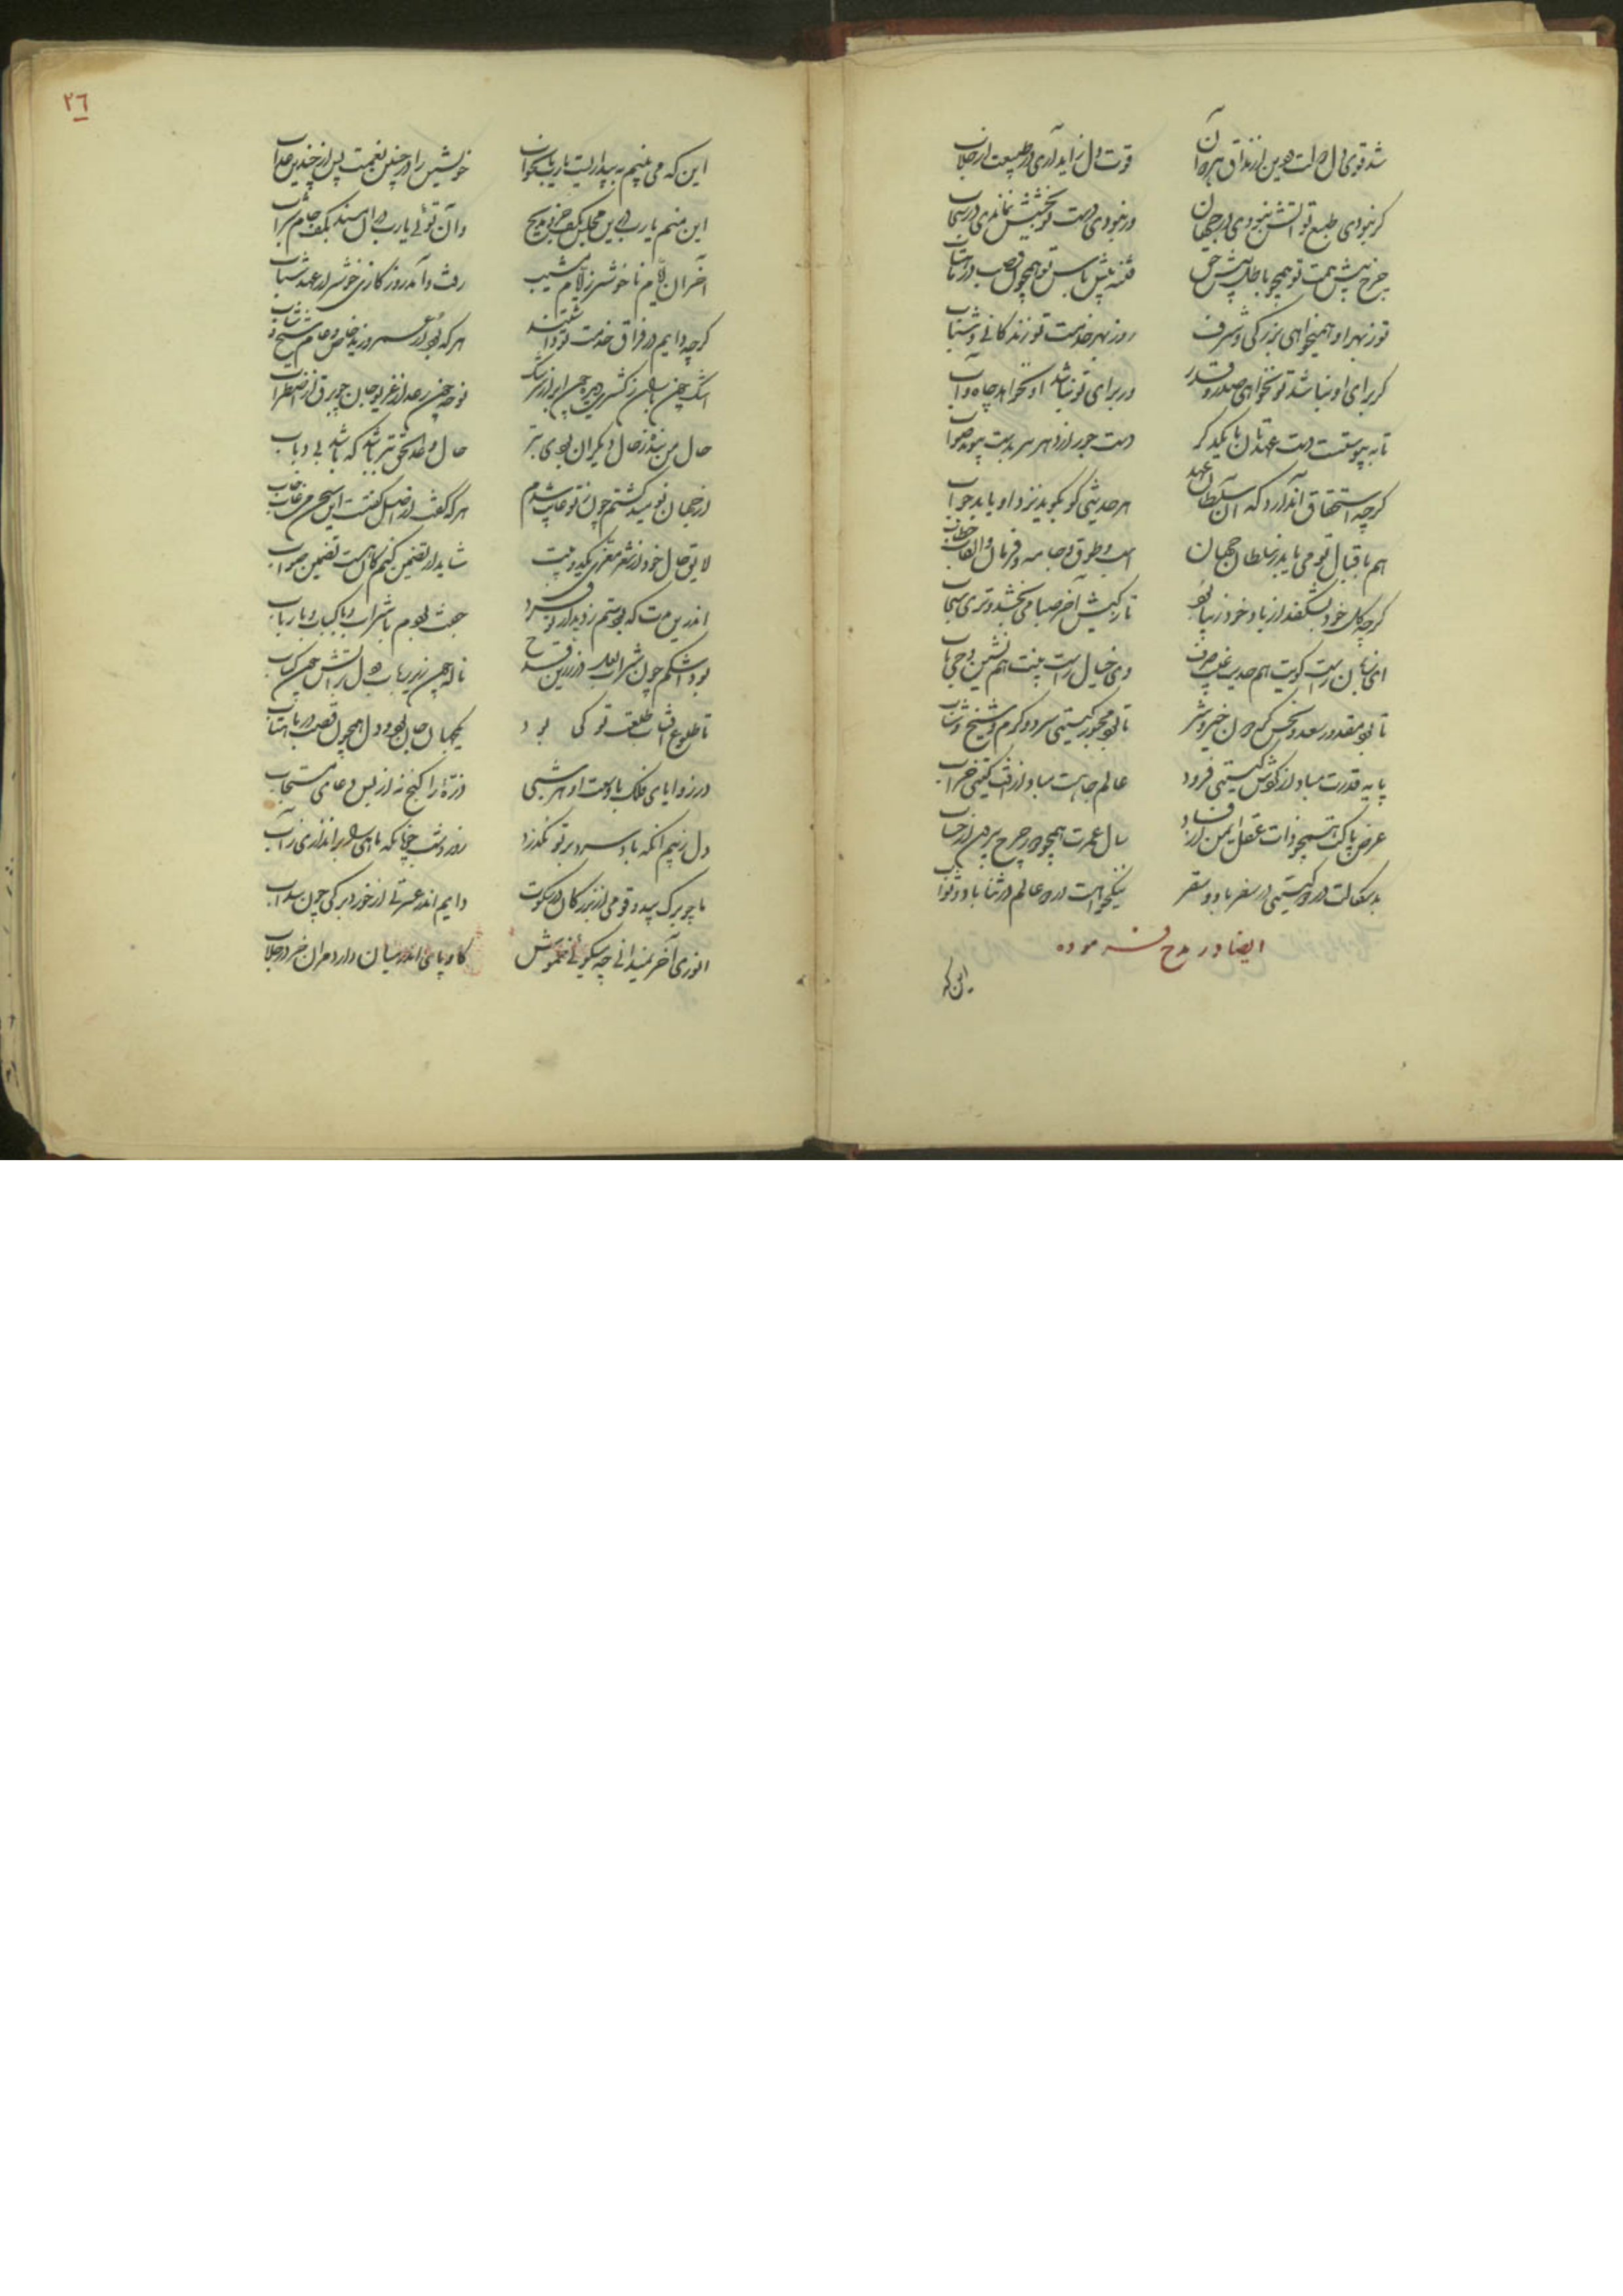 شد قوی دل دولت و دین از مذاق بهر آن قوت دل زاید آری در طبیعت از جلاب
گر نبودی طبع تو آتش نبودی در جهان ور نبودی دست تو بخشش نماندی در سحاب
چرخ پیش همت تو همچو باطل پیش حق فتنه پیش باس تو همچون قصب در ماهتاب
تو ز بهر او همیخواهی بزرگی و شرف روز بهر خدمت تو زندگانی و شباب
گر برای او نباشد تو نخواهی صدر و قدر ور برای تو نباشد او نخواهد جاه و آب
تا به پیوستست دست عهدتان با یکدگر دست جور از دهر سر بدست پیوند صواب
گرچه استحقاق آن دارد که آن سلطان عهد هر حدیثی کو بگوید نزد او یابد جواب
هم باقبال تو می یابد ز سلطان جهان اسب و طوق و جامه و فرمان و القاب و خطاب
گرچه گل خود بشکفد از باد خود زیبا بود تازگیش آخر صبا می بخشد و تری سحاب
ای زبان راست گویت هم حدیث غیب صرف وی خیال راست بینت هم نشین وحی ناب
تا بود مقدور سعد و نحس گردون خیر و شر تا بود مجبور گیتی سرد و گرم و شیخ و شاب
پایه قدرت مباد از گوش گیتی فرود عالم جاهت مباد از آفت گیتی خراب
عرض پاکت همچو ذات عقل ایمن از فساد سال عمرت همچو دور چرخ بیرون از حساب
بدسگالت در دو گیتی در سفر باد و سقر نیکخواهت در دو عالم در ثنا باد و ثواب
ایضا در مدح فرموده
این که
٢٦
این که می بینم به بیداریست یارب یا بخواب خویشتن را در چنین نعمت پس از چندین عذاب
این منم یارب درین مجلس بکف جزو مدیح وان تویی یارب در آن مسند بکف جام شراب
آخر آن ایام ناخوشتر ز ایام مشیب رفت و آمد روزگاری خوشتر از عهد شباب
گرچه دایم در فراق خدمت تو داشتند هر که بود از عمرو زید و خاص و عام و شیخ و شاب
اشک چون باران ز کثرت دیده چون ابر از سرشک نوحه چون رعد از غریو جان چو برق از اضطراب
حال من بنده ز حال دیگران بودی بتر حال وعد الحق بتر باشد که باشد بی رباب
از جهان نومید گشتم چون ز تو غایب شدم هر که گفت از اصل گفتست این سخن من غاب خاب
لایق حال خود از شعر معزی یک دو بیت شاید ار تضمین کنم کان هست تضمین صواب
اندرین مدت که بودستم ز دیدار تو فرد جفت بودم با شراب و با کباب و با رباب
بود اشکم چون شراب لعل در زرین قدح ناله چون زیر رباب و دل بر آتش چون کباب
تا طلوع آفتاب طلعت تو کی بود یکجهان جان بود و دل همچون قصب در ماهتاب
در زوایای فلک با وسعت او هر شبی ذرۀ را گنج نه از بس دعای مستجاب
دل ز بیم آنکه باد سرد بر تو بگذرد روز و شب چونانکه ماهی را براندازی ز آب
ما چو برگ بید و قومی از بزرگان در سکوت دایم اندر عشرتی از خورد برگی چون سداب
انوری آخر نمیدانی چه میگوئی خموش گاو پای اندر میان دارد مران خر در خلاب